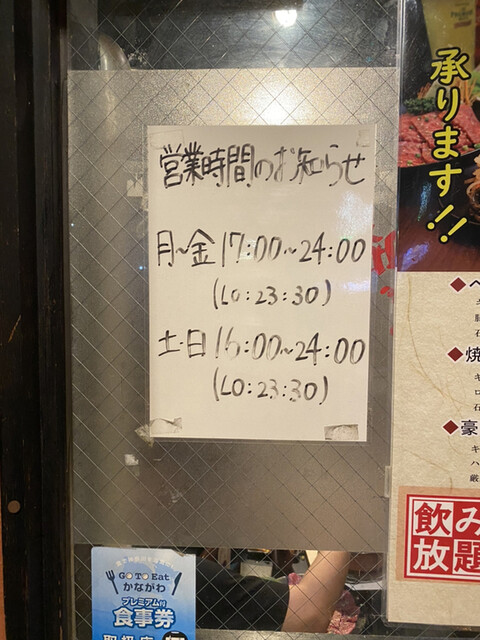 営業時間のお知らせ
月~金 17:00~24:00
(LO:23:30)
土・日 16:00~24:00
(LO:23:30)
承ります!!
飲み
放題
GO TO Eat
かながわ
プレミアム付
食事券
取扱店